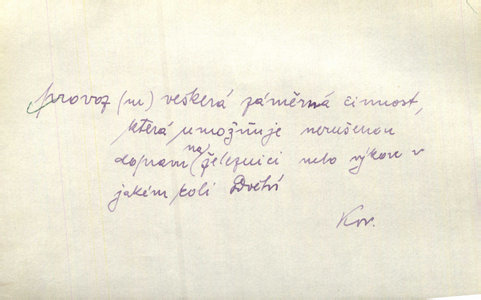 provoz (m) veškerá záměrná činnost,
která umožňuje nerušenou
dopravu na železnici nebo výkon v
jakémkoli
Kov.